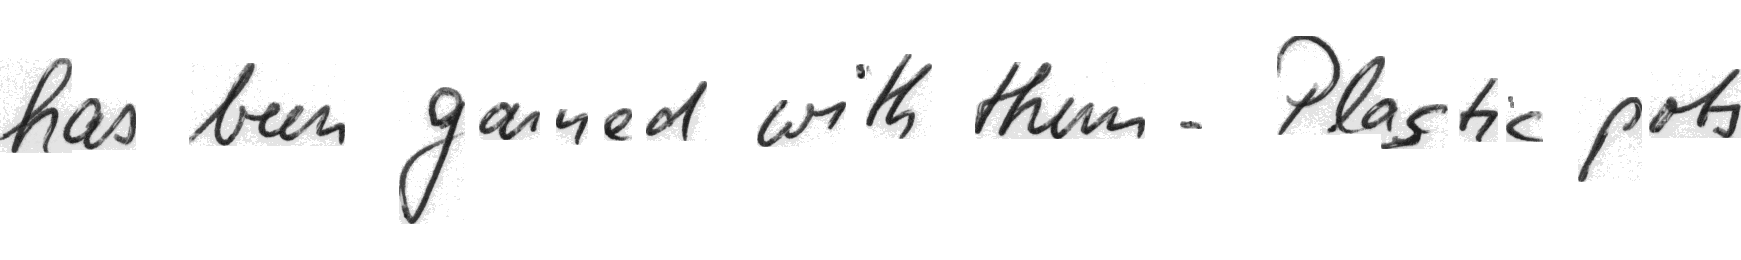 has been gained with them. Plastic pots